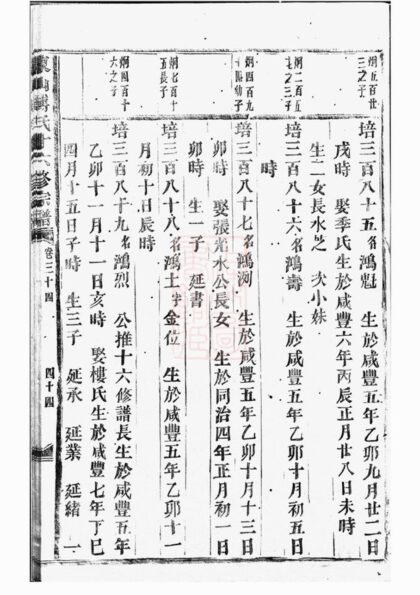 炯五百廿
三之子
培三百八十五名鴻魁 生於咸豐五年乙卯九月廿二日
戌時 娶季氏生於咸豐六年丙辰正月廿八日未時
生二女長水芝 次小妹
炯二百五
之子
培三百八十六名鴻壽 生於咸豐五年乙卯十月初五日
時
炯四百九
幼子
培三百八十七名鴻洌 生於咸豐五年乙卯十月十三日
卯時 娶張光水公長女 生於同治四年正月初一日
卯時 生一子 延書
炯七百十
五長子
培三百八十八名鴻土字金位 生於咸豐五年乙卯十一
月初十日辰時
炯四百十
六之子
培三百八十九名鴻烈 公推十六修譜長生於咸豐五年
乙卯十一月十一日亥時 娶樓氏生於咸豐七年丁巳
四月十五日子時 生三子 延承 延業 延緒 一
氏十六修宗譜 卷三十四 四十四